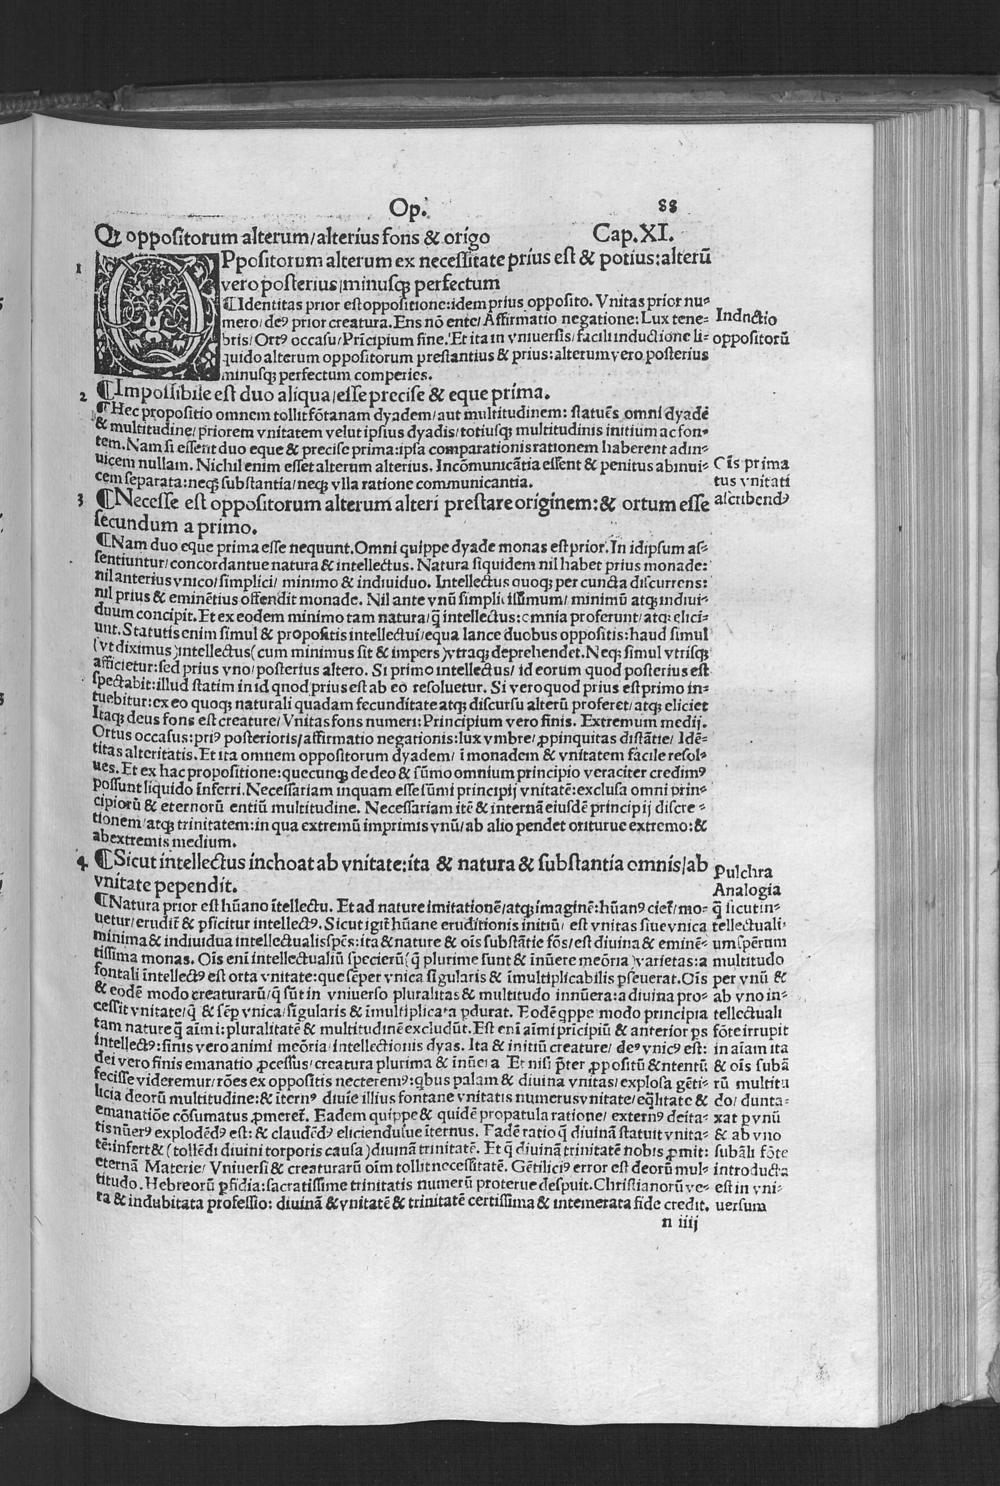 Op.
88
Qz oppositorum alterum/alterius fons & origo
Cap.XI.
1
OPpositorum alterum ex necessitate prius est & potius:alterū
vero posterius/minusqꝫ perfectum
¶Identitas prior est oppositione:idem prius opposito. Vnitas prior nu⸗
mero/deꝰ prior creatura. Ens nō ente/Affirmatio negatione:Lux tene⸗
bris/Ortꝰ occasu/Prīcipium fine. Et ita in vniuersis/facili inductione li⸗
quido alterum oppositorum prestantius & prius:alterum vero posterius
minusqꝫ perfectum comperies.
Inductio
oppositorū
2 ¶Impossibile est duo aliqua/esse precise & eque prima.
¶Hec propositio omnem tollit fōtanam dyadem/aut multitudinem: statuēs omni dyadē
& multitudine/priorem vnitatem velut ipsius dyadis/totiusqꝫ multitudinis initium ac fon⸗
tem. Nam si essent duo eque & precise prima:ipsa comparationis rationem haberent adin⸗
uicem nullam. Nichil enim esset alterum alterius. Incōmunicātia essent & penitus abinui⸗
cem separata:neqꝫ substantia/neqꝫ vlla ratione communicantia.
Cīs prima
tus vnitati
ascribendꝰ
3 ¶Necesse est oppositorum alterum alteri prestare originem:& ortum esse
secundum a primo.
¶Nam duo eque prima esse nequunt. Omni quippe dyade monas est prior. In idipsum as⸗
sentiuntur/concordantue natura & intellectus. Natura siquidem nil habet prius monade:
nil anterius vnico/simplici/ minimo & indiuiduo. Intellectus quoqꝫ per cuncta discurrens:
nil prius & eminētius offendit monade. Nil ante vnū simplicissimum/ minimū atqꝫ indiui⸗
duum concipit. Et ex eodem minimo tam natura/q̄ intellectus:omnia proferunt/atqꝫ elici⸗
unt. Statutis enim simul & propositis intellectui/equa lance duobus oppositis:haud simul
(vt diximus)intellectus(cum minimus sit & impers)vtraqꝫ deprehendet. Neqꝫ simul vtrisqꝫ
afficietur:sed prius vno/posterius altero. Si primo intellectus/ id eorum quod posterius est
spectabit:illud statim in id qnod prius est ab eo resoluetur. Si vero quod prius est primo in⸗
tuebitur:ex eo quoqꝫ naturali quadam fecunditate atqꝫ discursu alterū proferet/atqꝫ eliciet
Itaqꝫ deus fons est creature/Vnitas fons numeri:Principium vero finis. Extremum medij.
Ortus occasus:priꝰ posterioris/affirmatio negationis:lux vmbre/ꝓpinquitas distātie/ Idē⸗
titas alteritatis. Et ita omnem oppositorum dyadem/ ī monadem & vnitatem facile resol⸗
ues. Et ex hac propositione:quecunqꝫ de deo & sūmo omnium principio veraciter credimꝰ
possunt liquido īnferri. Necessariam inquam esse sūmi principij vnitatē:exclusa omni prin⸗
cipiorū & eternorū entiū multitudine. Necessariam itē & internā eiusdē principij discre⸗
tionem/atqꝫ trinitatem:in qua extremū imprimis vnū/ab alio pendet orituruе extremo:&
ab extremis medium.
4 ¶Sicut intellectus inchoat ab vnitate:ita & natura & substantia omnis/ab
vnitate pependit.
¶Natura prior est hūano ītellectu. Et ad nature imitationē/atqꝫ imaginē:hūanꝰ ciet̄/mo⸗
uetur/erudit̄ & ꝑficitur intellectꝰ. Sicut igit̄ hūane eruditionis initiū/ est vnitas siue vnica
minima & indiuidua intellectualis spēs:ita & nature & oīs substātie fōs/est diuina & eminē⸗
tissima monas. Oīs enī intellectualiū specierū(q̄ plurime sunt & inūere meōria)varietas:a
fontali īntellectꝰ est orta vnitate:que sēper vnica sīgularis & īmultiplicabilis ꝑseuerat. Oīs
& eodē modo creaturarū/q̄ sūt in vniuerso pluralitas & multitudo innūera:a diuina pro⸗
cessit vnitate/q̄ & sēꝑ vnica/sīgularis & īmultiplicata ꝑdurat. Eodē qppe modo principia
tam nature q̄ aīmi:pluralitatē & multitudinē excludūt. Est enī aīmi prīcipiū & anterior ps
intellectꝰ:finis vero animi meōria intellectionis dyas. Ita & initiū creature/ deꝰ vnicꝰ est:
dei vero finis emanatio ꝓcessus/creatura plurima & inūera Et nisi p̄ter ꝓpositū & ntentū
fecisse videremur/rōes ex oppositis necteremꝰ:qbus palam & diuina vnitas/explosa gēti⸗
licia deorū multitudine:& īternꝰ diuīe illius fontane vnitatis numerus vnitate/eq̄litate &
emanatiōe cōsumatus ꝓmeret̄. Eadem quippe & quidē propatula ratione/ externꝰ deita⸗
tis nūerꝰ explodēdꝰ est: & claudēdꝰ eliciendusue īternus. Eadē ratio q̄ diuinā statuit vnita⸗
tē:infert & (tollēdi diuini torporis causa)diuinā trinitatē. Et q̄ diuinā trinitatē nobis ꝓmit:
eternā Materie/ Vniuersi & creaturarū oīm tollit necessitatē. Gētiliciꝰ error est deorū mul⸗
titudo. Hebreorū ꝑfidia:sacratissime trinitatis numerū proterue despuit. Christianorū ve⸗
ra & indubitata professio: diuinā & vnitatē & trinitatē certissima & intemerata fide credit.
Pulchra
Analogia
q̄ sicut in⸗
tellectuali⸗
um spērum
multitudo
per vnū &
ab vno in⸗
tellectuali
fōte irrupit
in aīam ita
& oīs subā
rū multitu
do/ dunta⸗
xat ꝑ vnū
& ab vno
subāli fōte
introducta
est in vni⸗
uersum
n iiij